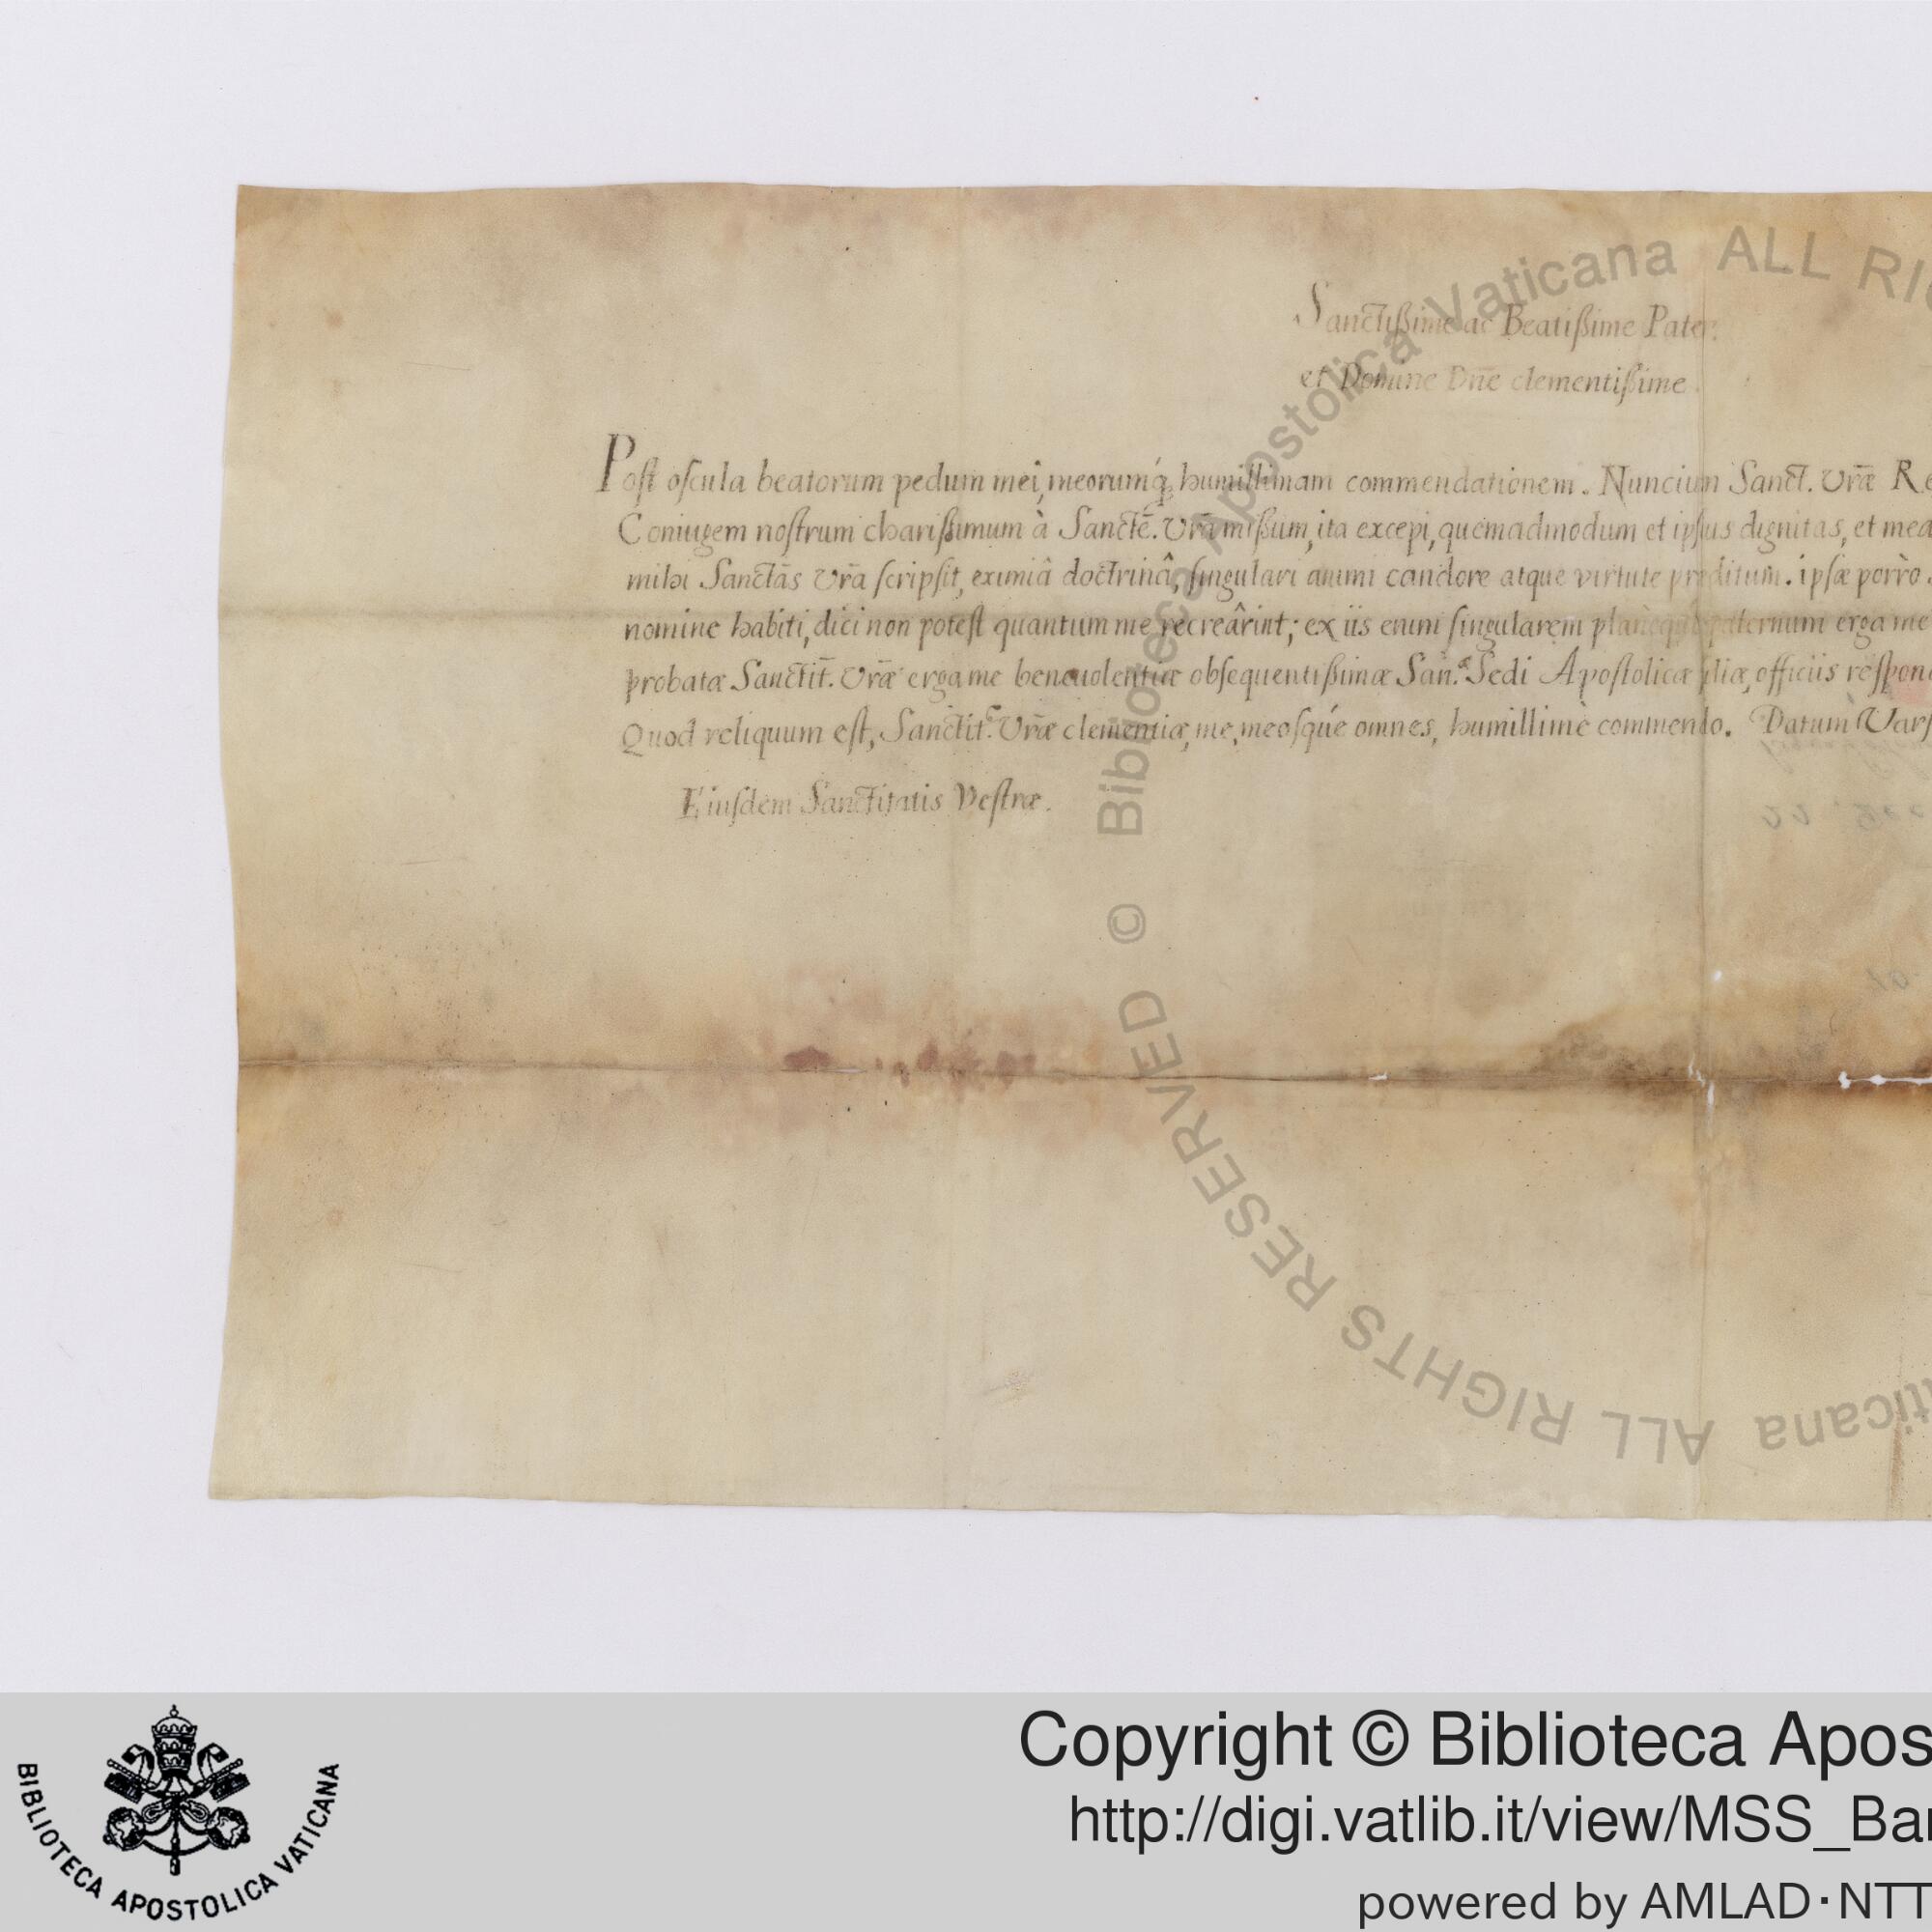 Sanctißime ac Beatißime Pater.
et Domine Dn̄e clementißime.
Post oſcula beatorum pedum mei, meorumq́; humillimam commendationem. Nuncium Sanct. Vr̄æ Re
Coniugem noſtrum charißimum à Sanctē. Vr̄a mißum, ita excepi, quemadmodum et ipſius dignitas, et mea
mihi Sanctās Vr̄a ſcripſit, eximiâ doctrinâ, ſingulari animi candore atque virtute preditum. ipſæ porrò
nomine habiti, dici non poteſt quantum me recreârint; ex iis enim ſingularem planèq́; paternum erga me
probatæ Sanctit̄. Vr̄æ erga me beneuolentiæ obſequentißimæ San.æ Sedi Apoſtolicæ filiæ, officiis reſpon
Quod reliquum eſt, Sanctit. Vr̄æ clementiæ, me, meoſqúe omnes, humillimè commendo. Datum Varſ
Eiuſdem Sanctitatis Veſtræ.
© Biblioteca Apostolica Vaticana ALL RIG
ticana ALL RIGHTS RESERVED
BIBLIOTECA APOSTOLICA VATICANA
Copyright © Biblioteca Apos
http://digi.vatlib.it/view/MSS_Bar
powered by AMLAD·NTT